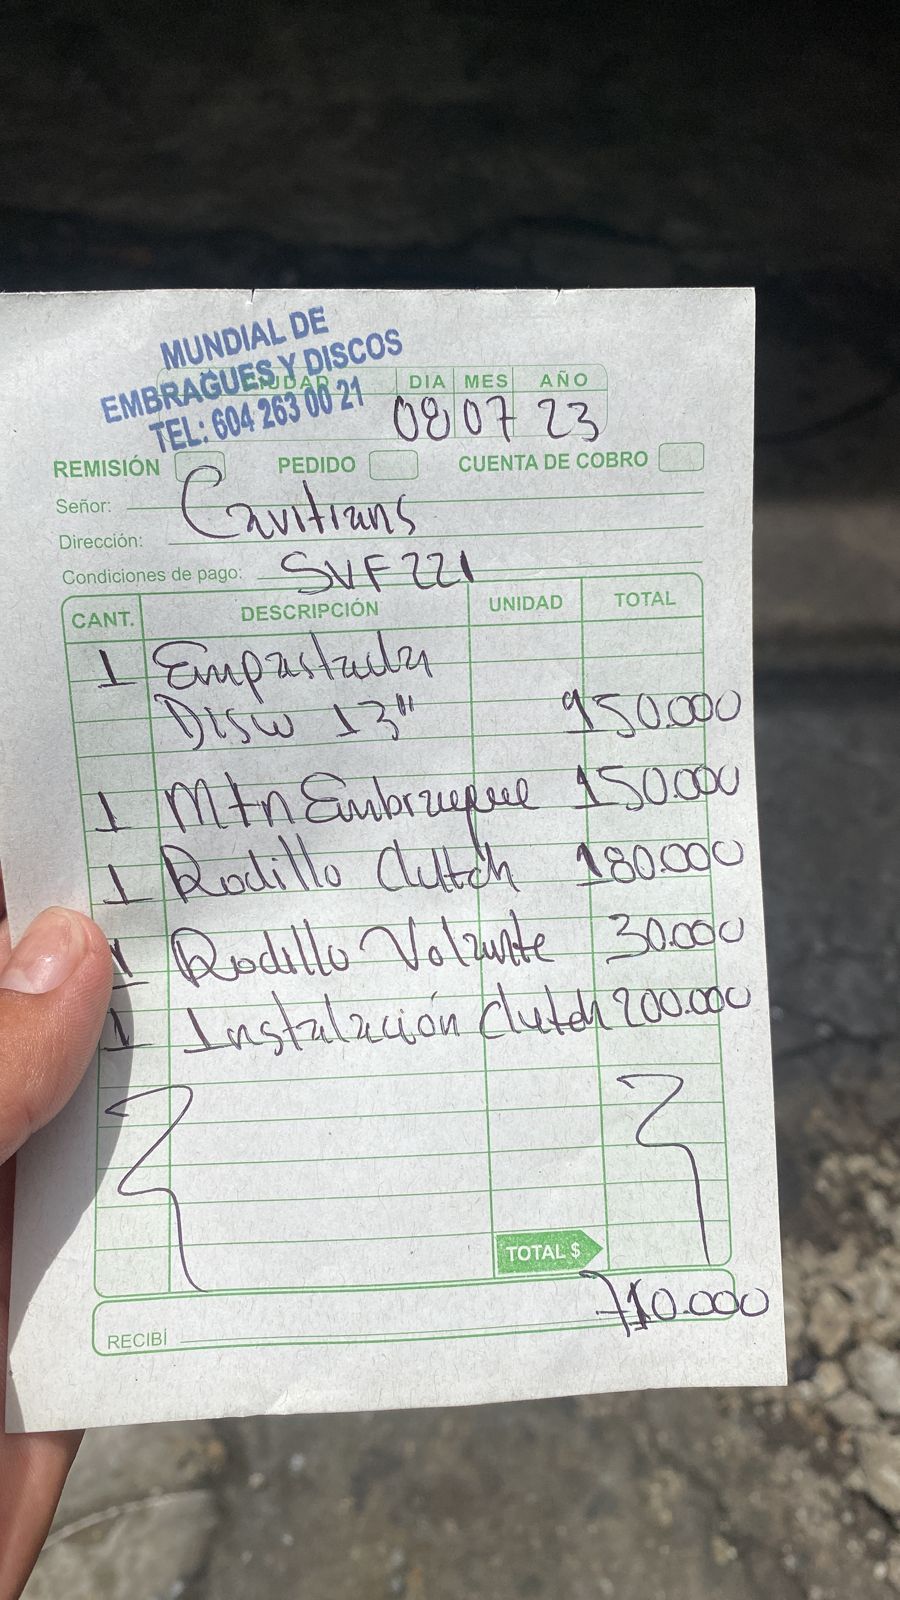 MUNDIAL DE
EMBRAGUES Y DISCOS
TEL: 604 263 00 21
CIUDAD
DIA MES AÑO
08 07 23
REMISIÓN PEDIDO CUENTA DE COBRO
Señor: Cavitrans
Dirección:
Condiciones de pago: SVF221
CANT. DESCRIPCIÓN UNIDAD TOTAL
1 Empastada
Disco 13" 150.000
1 Mtn Embrague 150.000
1 Rodillo Clutch 180.000
1 Rodillo Volante 30.000
1 Instalación Clutch 200.000
TOTAL $
710.000
RECIBÍ